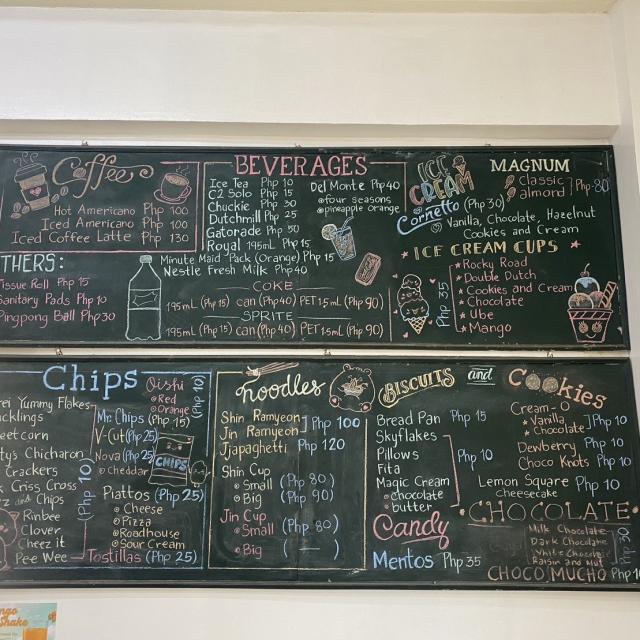 Coffee
Hot Americano Php 100
Iced Americano Php 100
Iced Coffee Latte Php 130
THERS:
Tissue Roll Php 15
Sanitary Pads Php 10
Pingpong Ball Php 30
BEVERAGES
Ice Tea Php 10
C2 Solo Php 15
Chuckie Php 30
Dutchmill Php 25
Gatorade Php 50
Royal 195mL Php 15
Minute Maid Pack (Orange) Php 15
Nestle Fresh Milk Php 40
Del Monte Php 40
four seasons
pineapple orange
COKE
195mL (Php 15) can (Php 40) PET 1.5mL (Php 90)
SPRITE
195mL (Php 15) can (Php 40) PET 1.5mL (Php 90)
ICE CREAM
Cornetto (Php 30)
Vanilla, Chocolate, Hazelnut
Cookies and Cream
MAGNUM
Classic
almond Php 80
ICE CREAM CUPS
Php 35
Rocky Road
Double Dutch
Cookies and Cream
Chocolate
Ube
Mango
Chips
rei Yummy Flakes
cklings
eetcorn
tys Chicharon
Crackers
k Criss Cross
z and Chips
Rinbee
Clover
Cheez it
Pee Wee
(Php 10)
Oishi
Red
Orange
(Php 10)
Mr. Chips (Php 15)
V-Cut (Php 25)
Nova (Php 25)
Cheddar
CHIPS
Piattos (Php 25)
Cheese
Pizza
Roadhouse
Sour Cream
Tostillas (Php 25)
Noodles
Shin Ramyeon
Jin Ramyeon Php 100
Jjapaghetti Php 120
Shin Cup
Small (Php 80)
Big (Php 90)
Jin Cup
Small (Php 80)
Big ( — )
BISCUITS and COOKIES
Bread Pan Php 15
Skyflakes
Pillows
Fita
Magic Cream
chocolate
butter
Php 10
Candy
Mentos Php 35
Cream-O
Vanilla
Chocolate Php 10
Dewberry Php 10
Choco Knots Php 10
Lemon Square Php 10
cheesecake
CHOCOLATE
Milk Chocolate
Dark Chocolate
White Chocolate
Raisin and Nut
Php 30
CHOCO MUCHO Php 1
ngo
Shake